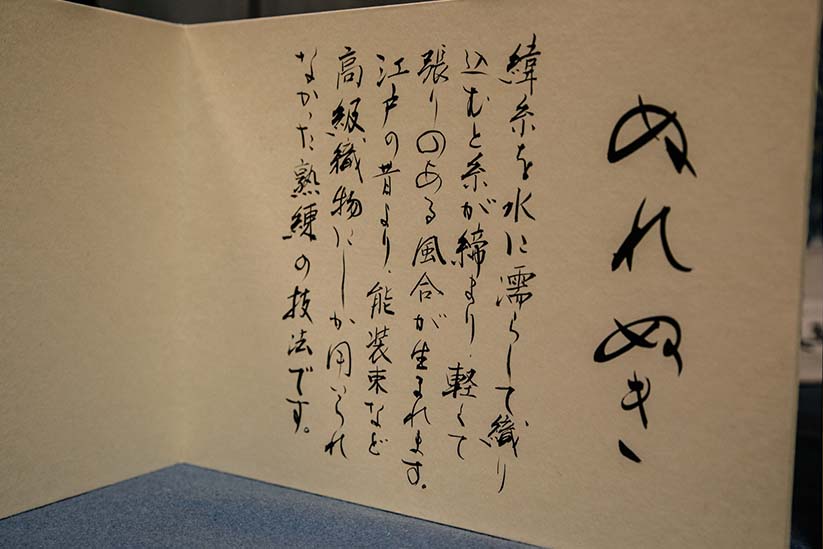 ぬれぬき
緯糸を水に濡らして織り
込むと糸が締まり、軽くて
張りのある風合が生まれます。
江戸の昔より、能装束など
高級織物にしか用いられ
なかった熟練の技法です。